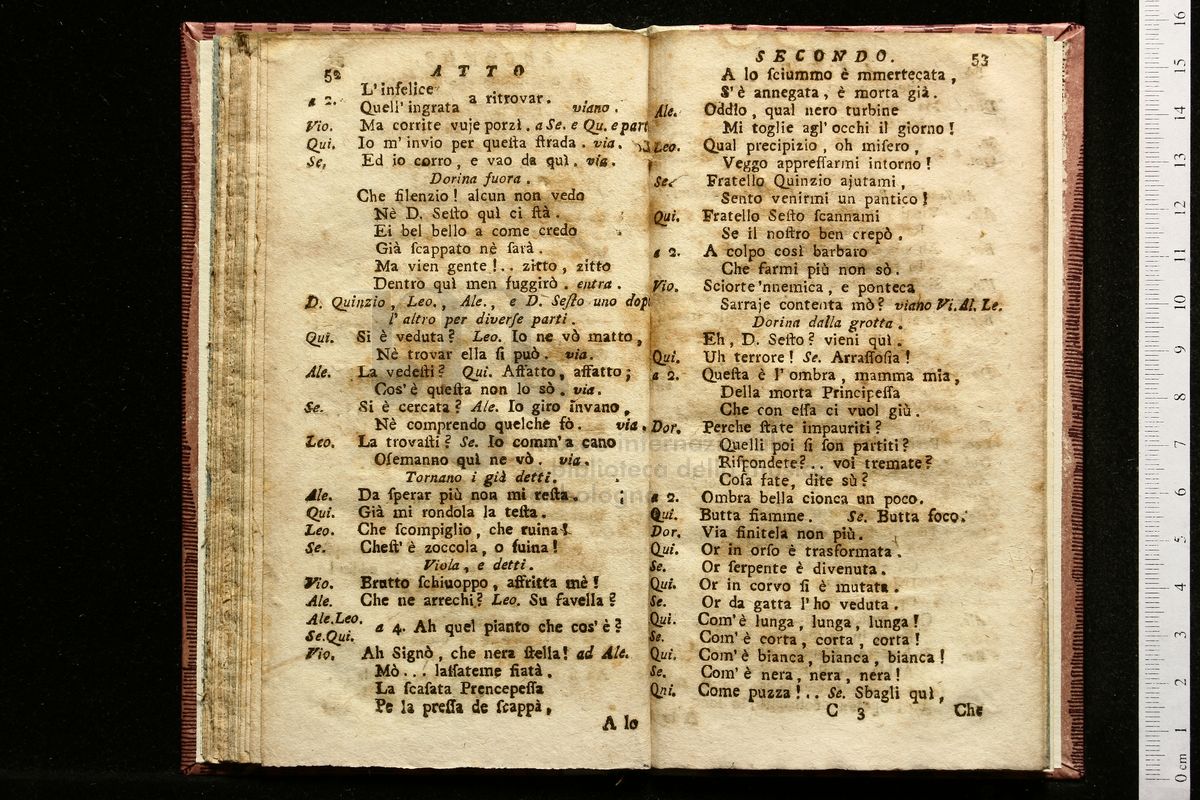 52 ATTO
L' infelice
a 2. a ritrovar.
Quell' ingrata viano.
Vio. Ma corrite vuje porzì. a Se. e Qu. e part
Qui. Io m' invio per questa strada. via.
Se. Ed io corro, e vao da quì. via.
Dorina fuora.
Che silenzio! alcun non vedo
Nè D. Sesto quì ci stà.
Ei bel bello a come credo
Già scappato nè sarà.
Ma vien gente!.. zitto, zitto
Dentro quì men fuggirò. entra.
D. Quinzio, Leo., Ale., e D. Sesto uno dopo
l' altro per diverse parti.
Qui. Si è veduta? Leo. Io ne vò matto,
Nè trovar ella si può. via.
Ale. La vedesti? Qui. Affatto, affatto;
Cos' è questa non lo sò. via.
Se. Si è cercata? Ale. Io giro invano,
Nè comprendo quelche fò. via.
Leo. La trovasti? Se. Io comm' a cano
Osemanno quì ne vò. via.
Tornano i già detti.
Ale. Da sperar più non mi resta.
Qui. Già mi rondola la testa.
Leo. Che scompiglio, che ruina!
Se. Chest' è zoccola, o fuina!
Viola, e detti.
Vio. Brutto schiuoppo, affritta mè!
Ale. Che ne arrechi? Leo. Su favella?
Ale. Leo.
Se. Qui. a 4. Ah quel pianto che cos' è?
Vio. Ah Signò, che nera stella! ad Ale.
Mò... lassateme fiatà.
La scasata Prencepessa
Pe la pressa de scappà,
A lo
SECONDO. 53
A lo sciummo è mmertecata,
S' è annegata, è morta già.
Ale. Oddìo, qual nero turbine
Mi toglie agl' occhi il giorno!
Leo. Qual precipizio, oh misero,
Veggo appressarmi intorno!
Se. Fratello Quinzio ajutami,
Sento venirmi un pantico!
Qui. Fratello Sesto scannami
Se il nostro ben crepò.
a 2. A colpo così barbaro
Che farmi più non sò.
Vio. Sciorte 'nnemica, e ponteca
Sarraje contenta mò? viano Vi. Al. Le.
Dorina dalla grotta.
Eh, D. Sesto? vieni quì.
Qui. Uh terrore! Se. Arrassosia!
a 2. Questa è l' ombra, mamma mia,
Della morta Principessa
Che con essa ci vuol giù.
Dor. Perche state impauriti?
Quelli poi si son partiti?
Rispondete?.. voi tremate?
Cosa fate, dite sù?
a 2. Ombra bella cionca un poco.
Qui. Butta fiamme. Se. Butta foco.
Dor. Via finitela non più.
Qui. Or in orso è trasformata.
Se. Or serpente è divenuta.
Qui. Or in corvo si è mutata.
Se. Or da gatta l' ho veduta.
Qui. Com' è lunga, lunga, lunga!
Se. Com' è corta, corta, corta!
Qui. Com' è bianca, bianca, bianca!
Se. Com' è nera, nera, nera!
Qni. Come puzza!.. Se. Sbagli quì,
C 3 Che
0 cm 1 2 3 4 5 6 7 8 9 10 11 12 13 14 15 16